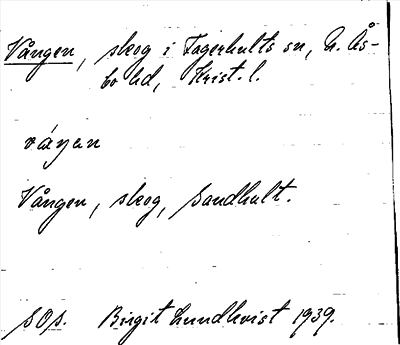 Vången, skog i Fagerhults sn, N. Ås-
bo hd, Krist. l.
váŋan
Vången, skog, Sandhult.
SOS. Birgit Lundkvist 1939.